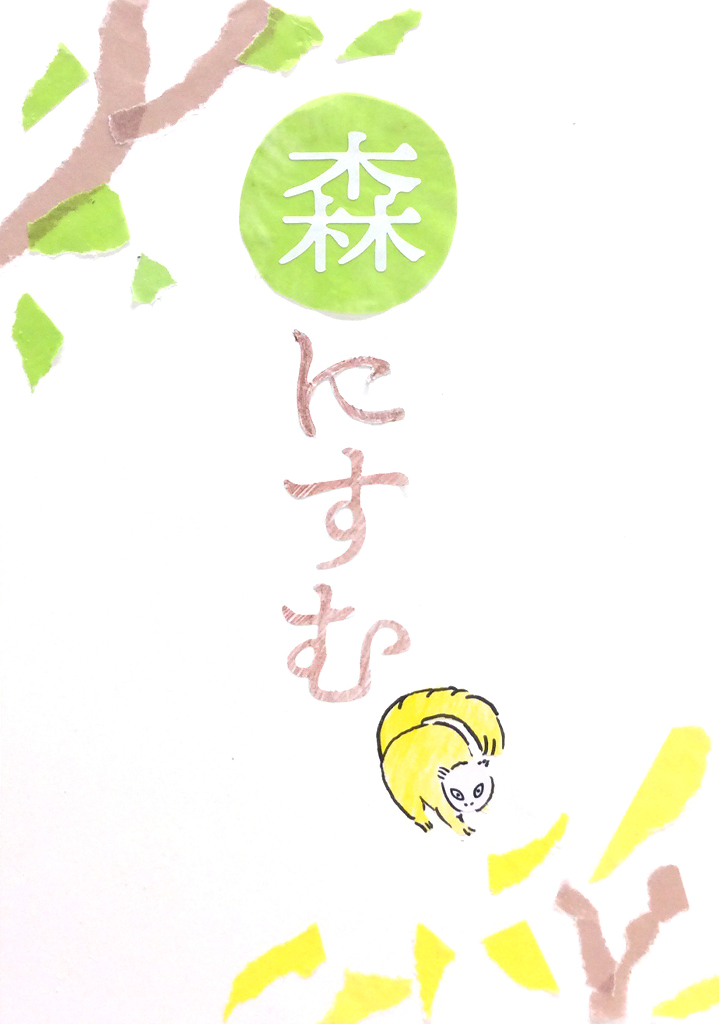 森にすむ